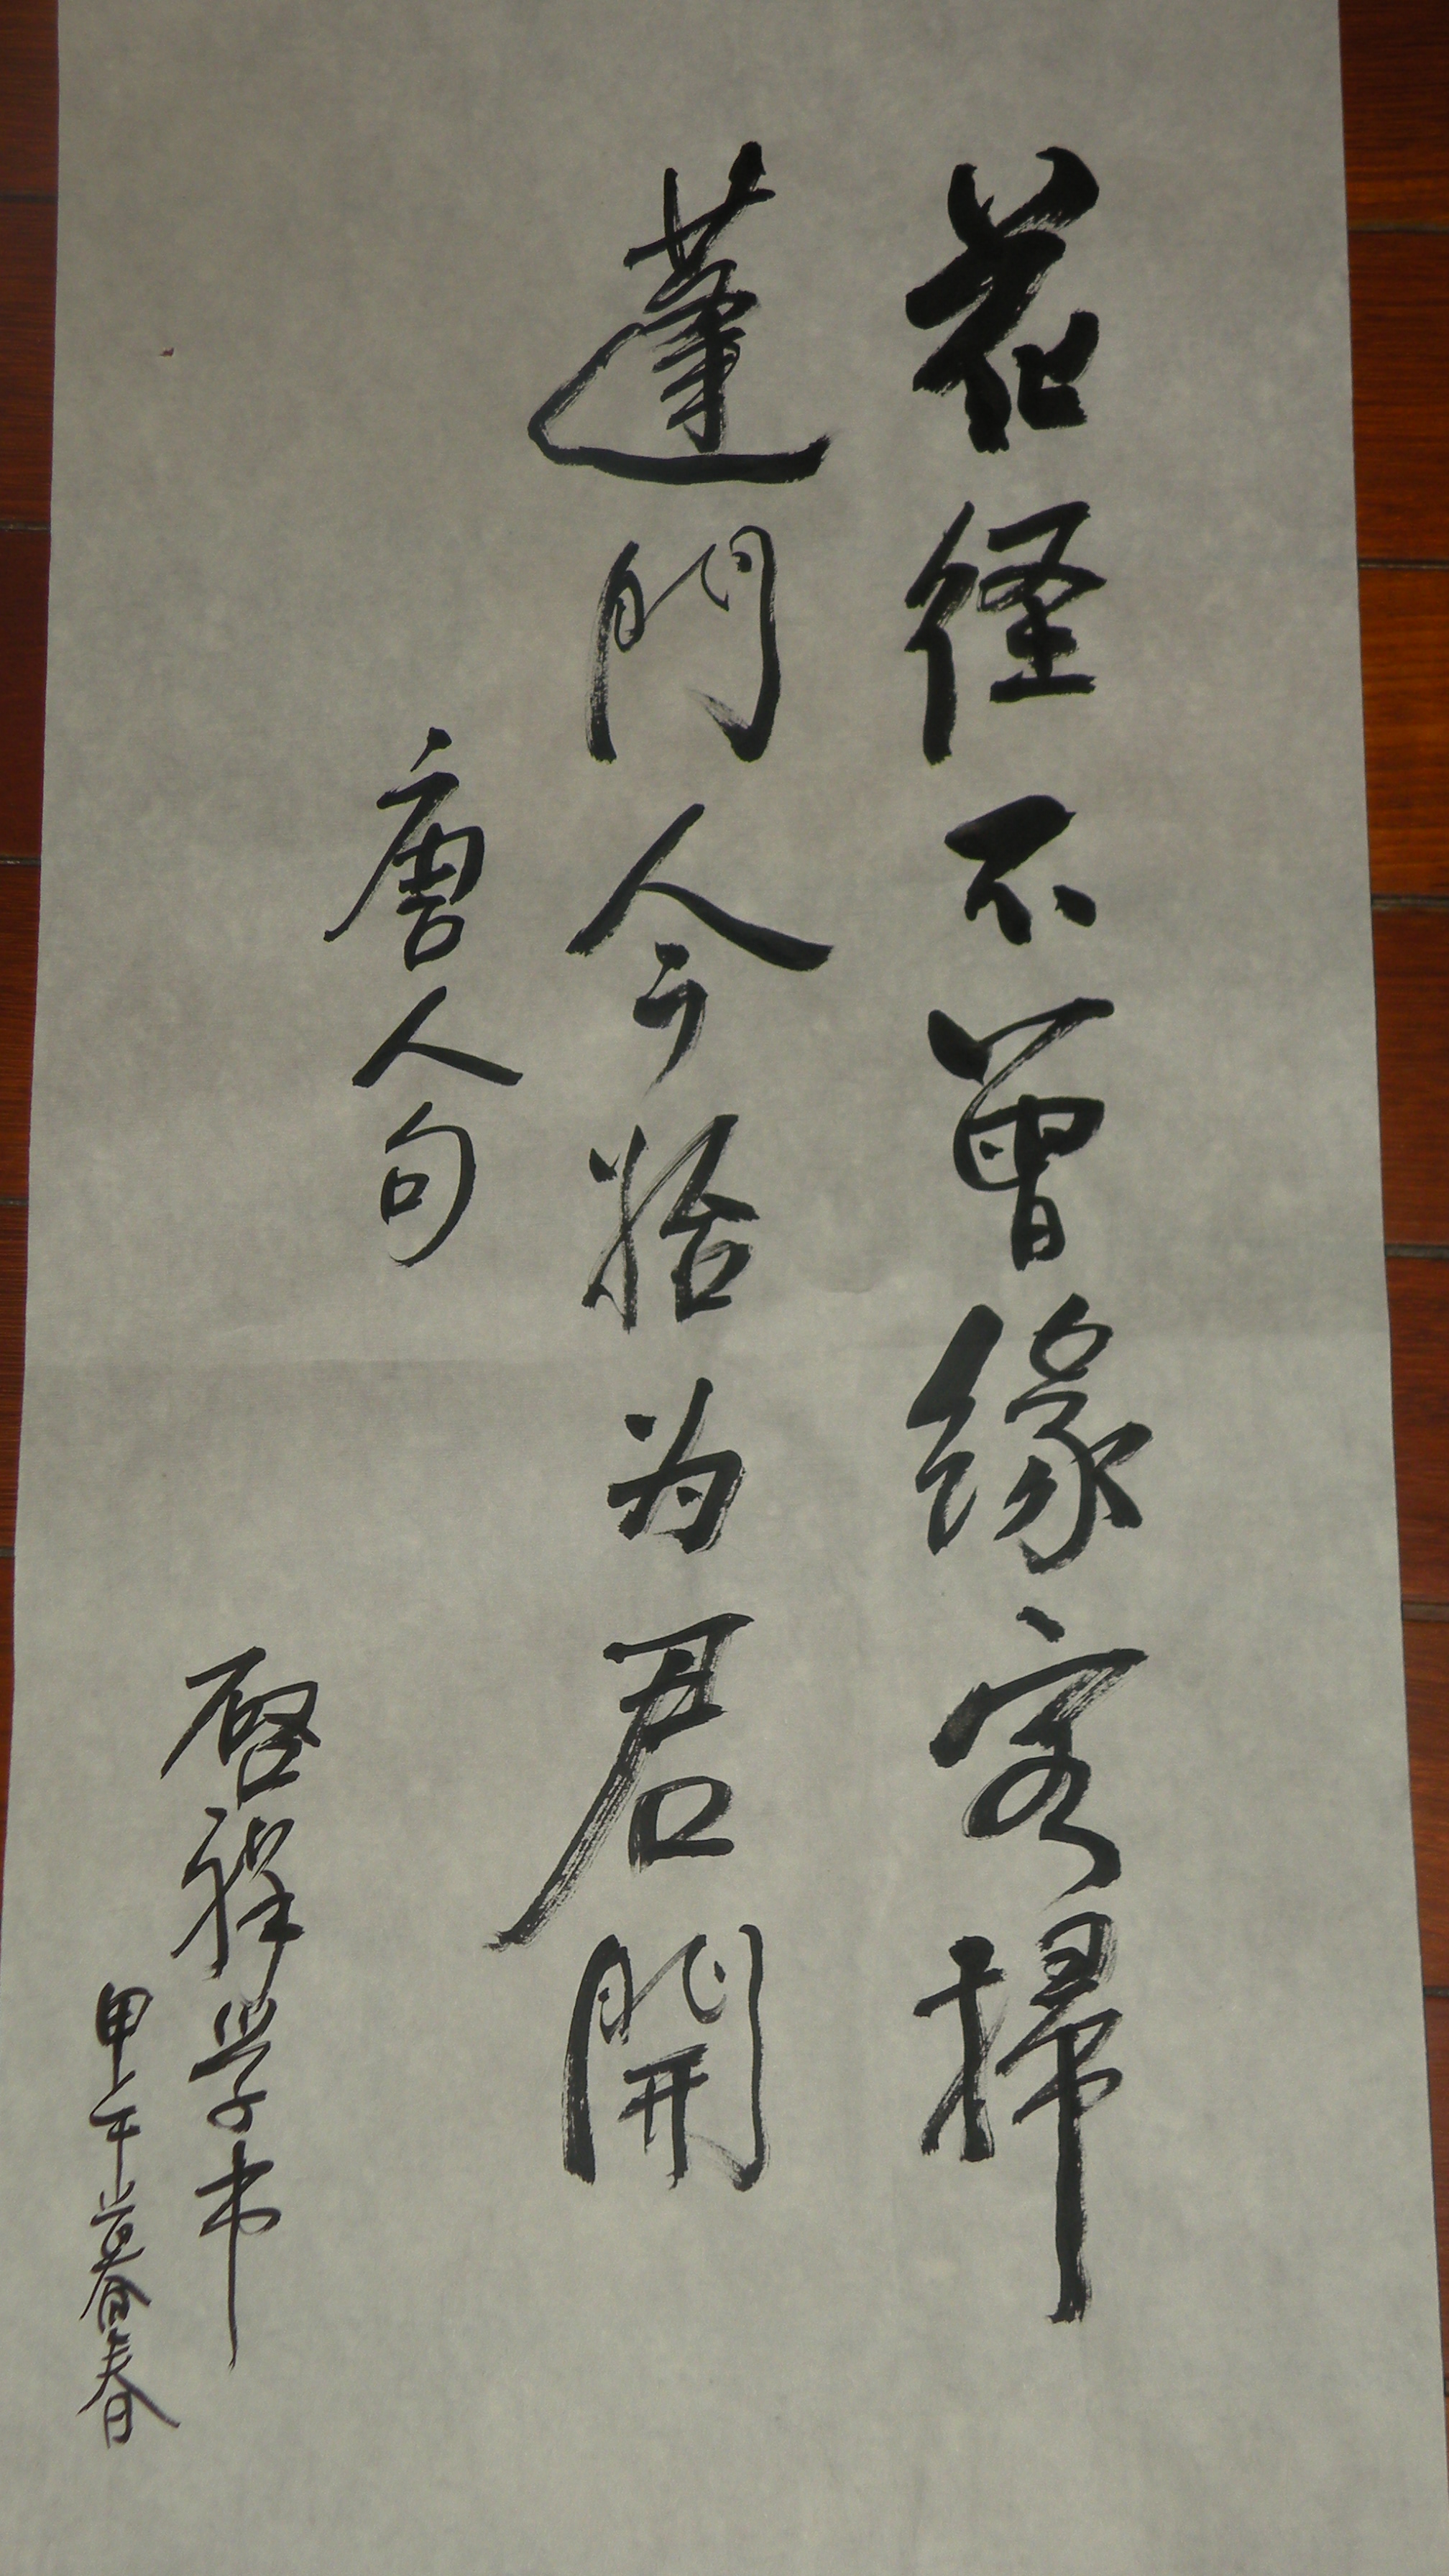 花径不曾缘客掃
蓬門今始为君開
唐人句
啓祥学书
甲午暮春